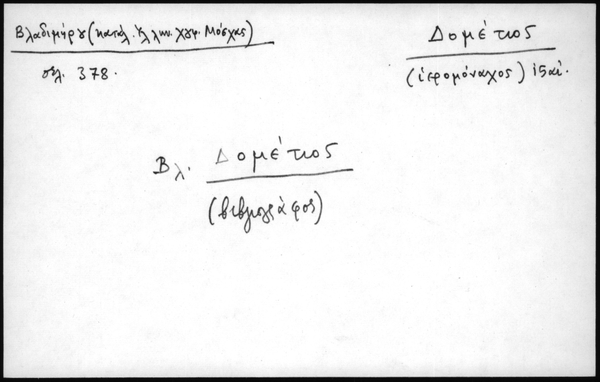 Βλαδιμήρου (καταλ. Ἑλλην. χγφ. Μόσχας)
σελ. 378.
Δομέτιος
(ἱερομόναχος) 15 αἰ.
Βλ. Δομέτιος
(βιβλιογράφος)